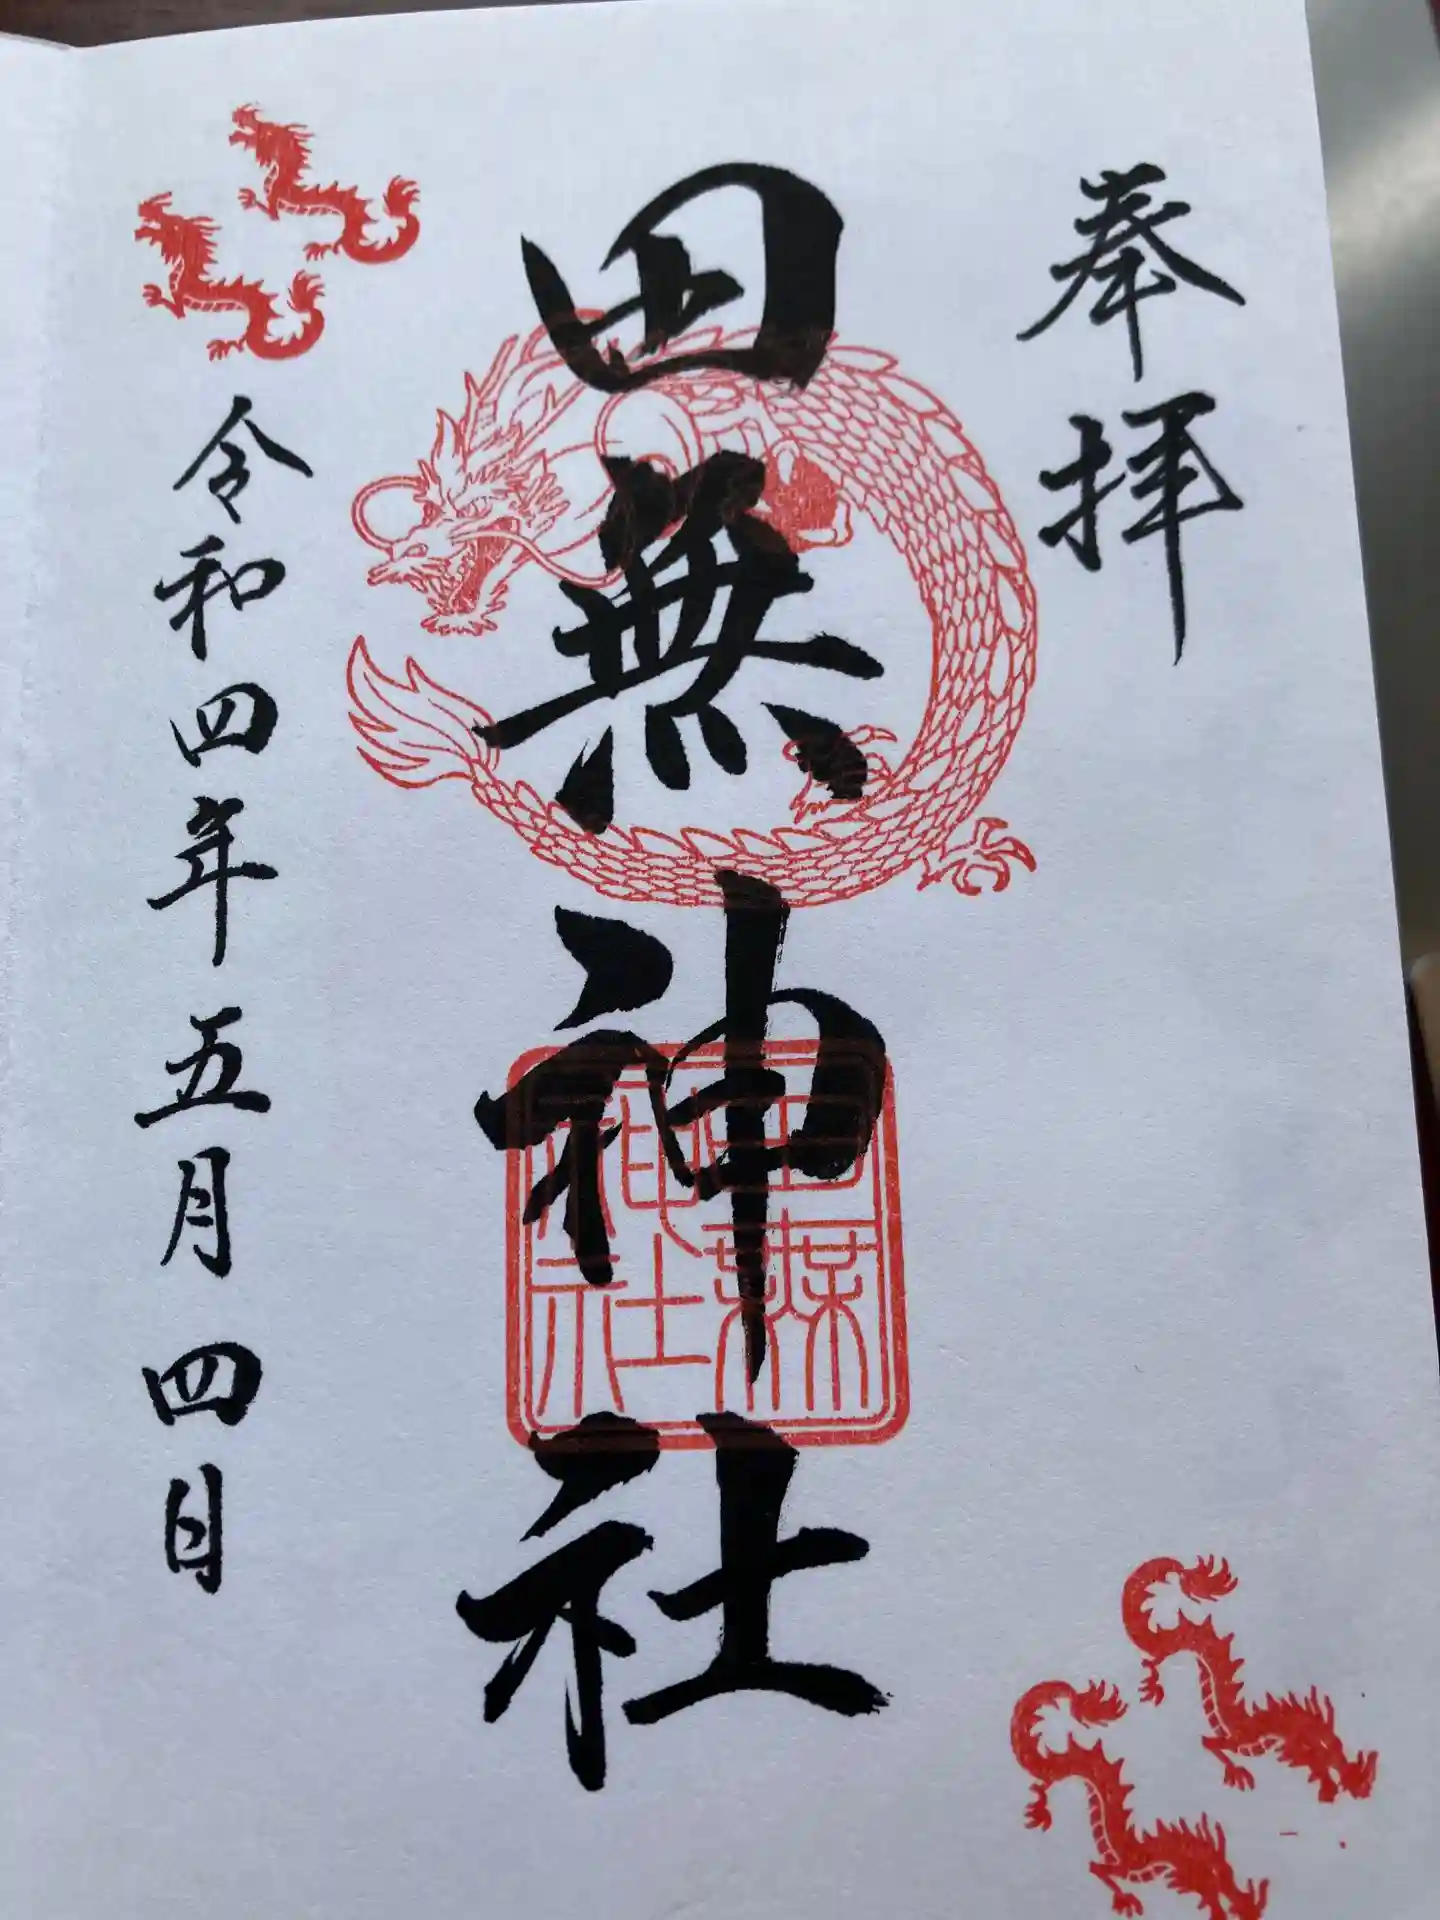 奉拝
田無神社
田無
神社
令和四年五月四日